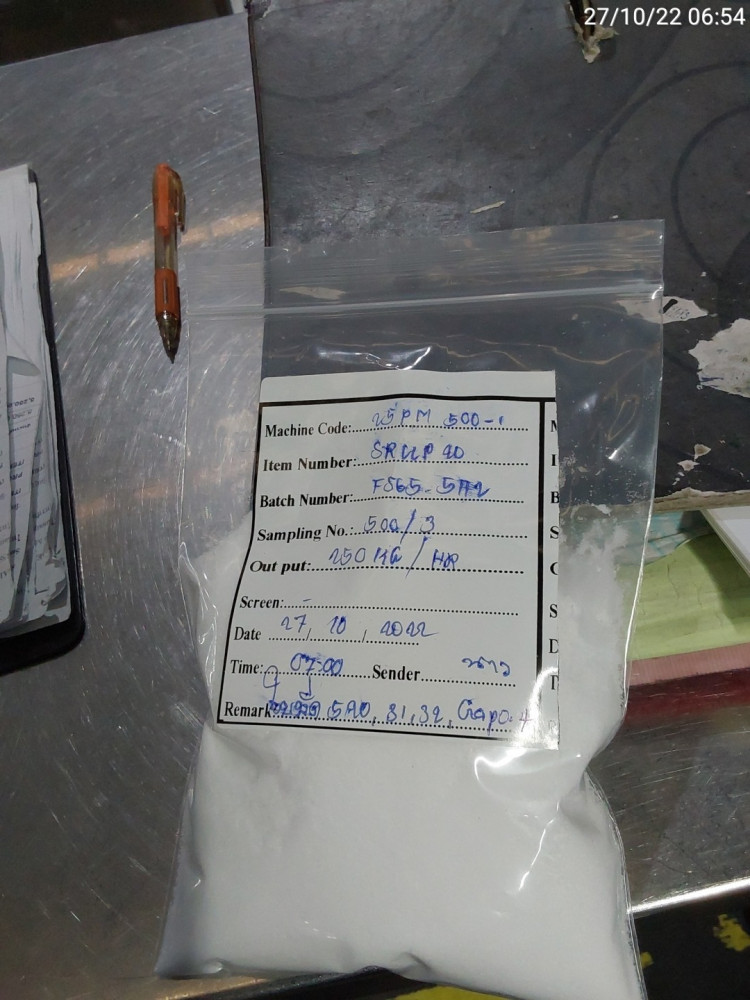 27/10/22 06:54
Machine Code: 25PM 500-1
Item Number: SRUP 20
Batch Number: FS65-5
Sampling No.: 500/3
Out put: 250 KG / HR
Screen: -
Date 27, 10, 2022
Time: 07:00 Sender
Remark 31, 32, Gapo. 4